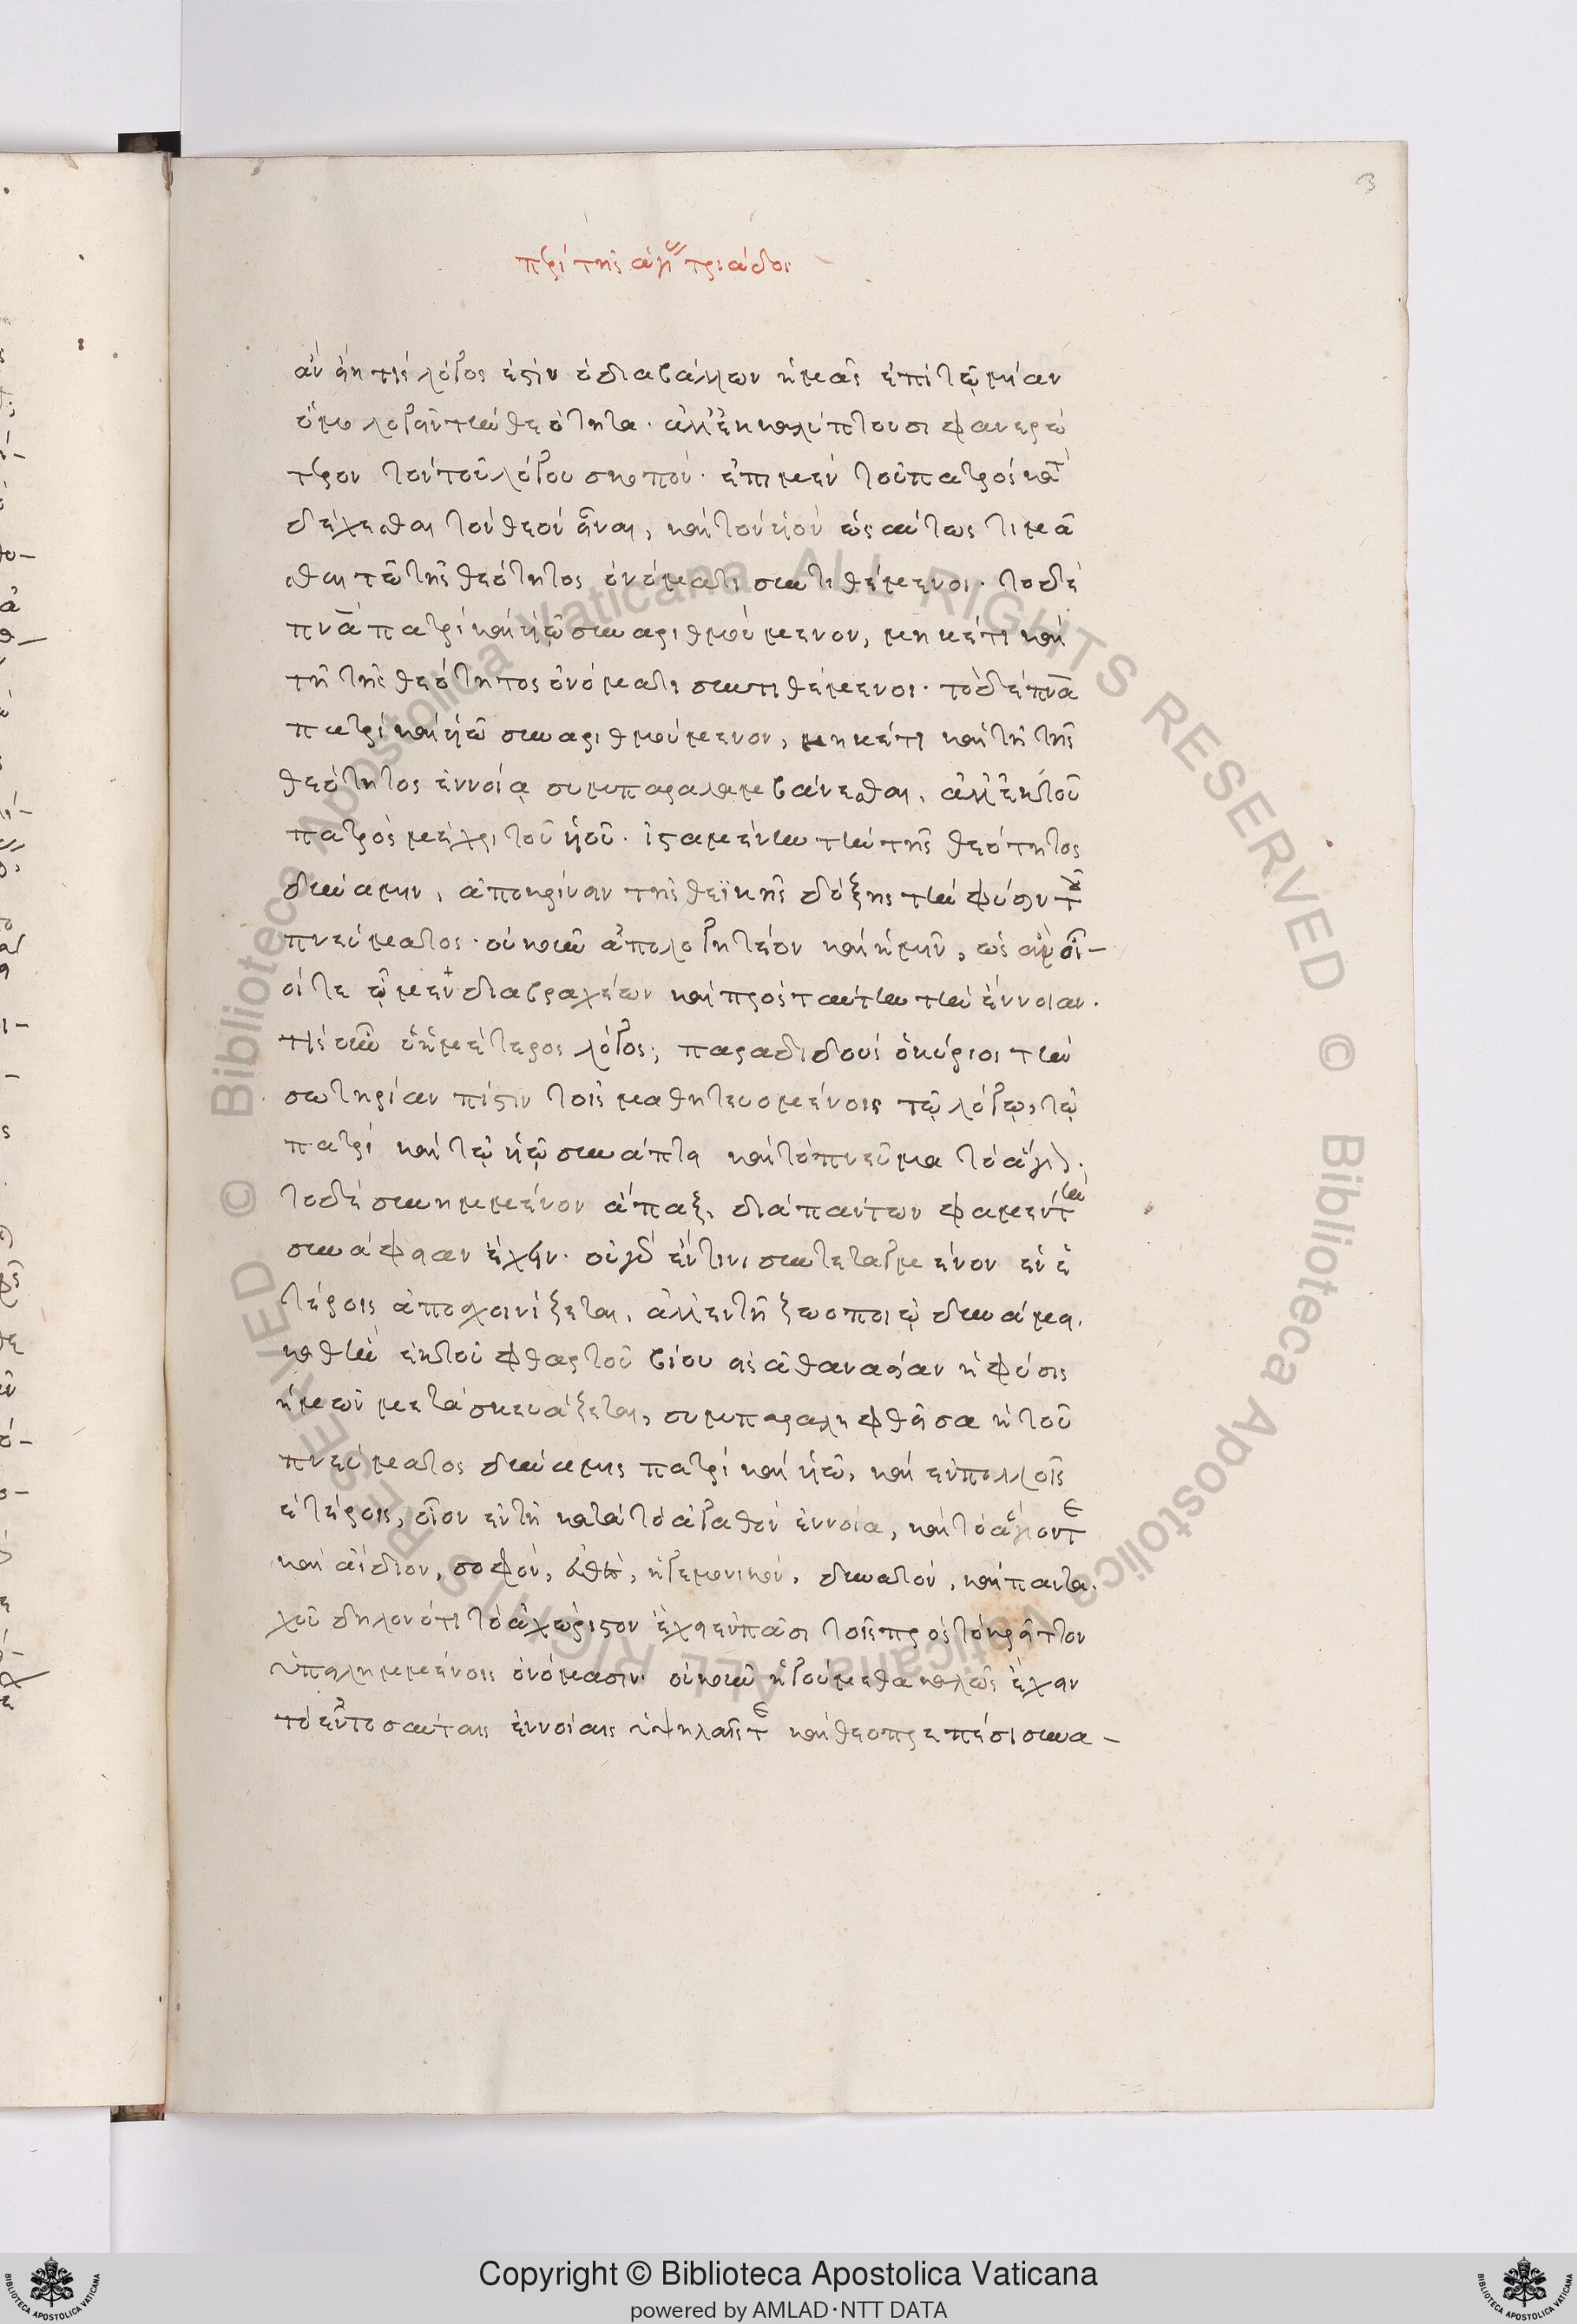 3
περὶ τῆς ἁγίας τριάδος
ἂν εἴη τίς λόγος ἐστὶν ὁ διαβάλλων ἡμᾶς ἐπὶ τῷ μίαν
ὁμολογεῖν τὴν θεότητα. ἀλλ' ἐκκαλύπτουσι φανερώ
τερον τὸν τοῦ λόγου σκοπόν. ἐπὶ μὲν τοῦ πατρὸς κατα
δέχεσθαι τὸν θεὸν εἶναι, καὶ τὸν υἱὸν ὡσαύτως τιμᾶ
σθαι τῶ τῆς θεότητος ὀνόματι συντιθέμενοι. τὸ δὲ
πνᾶ πατρὶ καὶ υἱῷ συναριθμούμενον, μηκέτι καὶ
τῆ τῆς θεότητος ὀνόματι συντιθέμενοι. τὸ δὲ πνᾶ
πατρὶ καὶ υἱῶ συναριθμούμενον, μηκέτι καὶ τῆ τῆς
θεότητος ἐννοίᾳ συμπαραλαμβάνεσθαι, ἀλλ' ἐκ τοῦ
πατρὸς μέχρι τοῦ υἱοῦ. ἱσταμένην τὴν τῆς θεότητος
δύναμιν, ἀποκρίνειν τῆς θεϊκῆς δόξης τὴν φύσιν τοῦ
πνεύματος. οὐκοῦν ἀπολογητέον καὶ ἡμῖν, ὡς
οἷτε ὦμεν διαβραχέων καὶ πρὸς ταύτην τὴν ἔννοιαν.
τίς οὖν ὁ ἡμέτερος λόγος; παραδιδοὺς ὁ κύριος τὴν
σωτηρίαν πίστιν τοῖς μαθητευομένοις τῷ λόγῳ, τῷ
πατρὶ καὶ τῷ υἱῷ συνάπτει καὶ τὸ πνεῦμα τὸ ἅγιον.
τὸ δὲ συνημμένον ἅπαξ, διὰ πάντων φαμὲν τὴν
συνάφειαν ἔχειν. οὐ γὰρ ἔν τινι συντεταγμένον ἐν ἑ
τέροις ἀποσχοινίζεται, ἀλλ' ἐν τῆ ζωοποιῷ δυνάμει.
καθ' ἣν ἐκ τοῦ φθαρτοῦ βίου εἰς ἀθανασίαν ἡ φύσις
ἡμῶν μετασκευάζεται, συμπαραληφθεῖσα ἡ τοῦ
πνεύματος δύναμις πατρὶ καὶ υἱῶ, καὶ ἐν πολλοῖς
ἑτέροις, οἷον ἐν τῆ κατὰ τὸ ἀγαθὸν ἐννοία, καὶ τὸ ἅγιον τε
καὶ ἀίδιον, σοφόν, εὐθὲς, ἡγεμονικόν, δυνατόν, καὶ πάντα
χοῦ δηλονότι τὸ ἀχώριστον ἔχει ἐν πᾶσι τοῖς πρὸς τὸ κρεῖττον
ὑπειλημμένοις ὀνόμασιν. οὐκοῦν ἡγούμεθα καλῶς ἔχειν
τὸ ἐν τοσαύταις ἐννοίαις ὑψηλαῖς τε καὶ θεοπρεπέσι συνα-